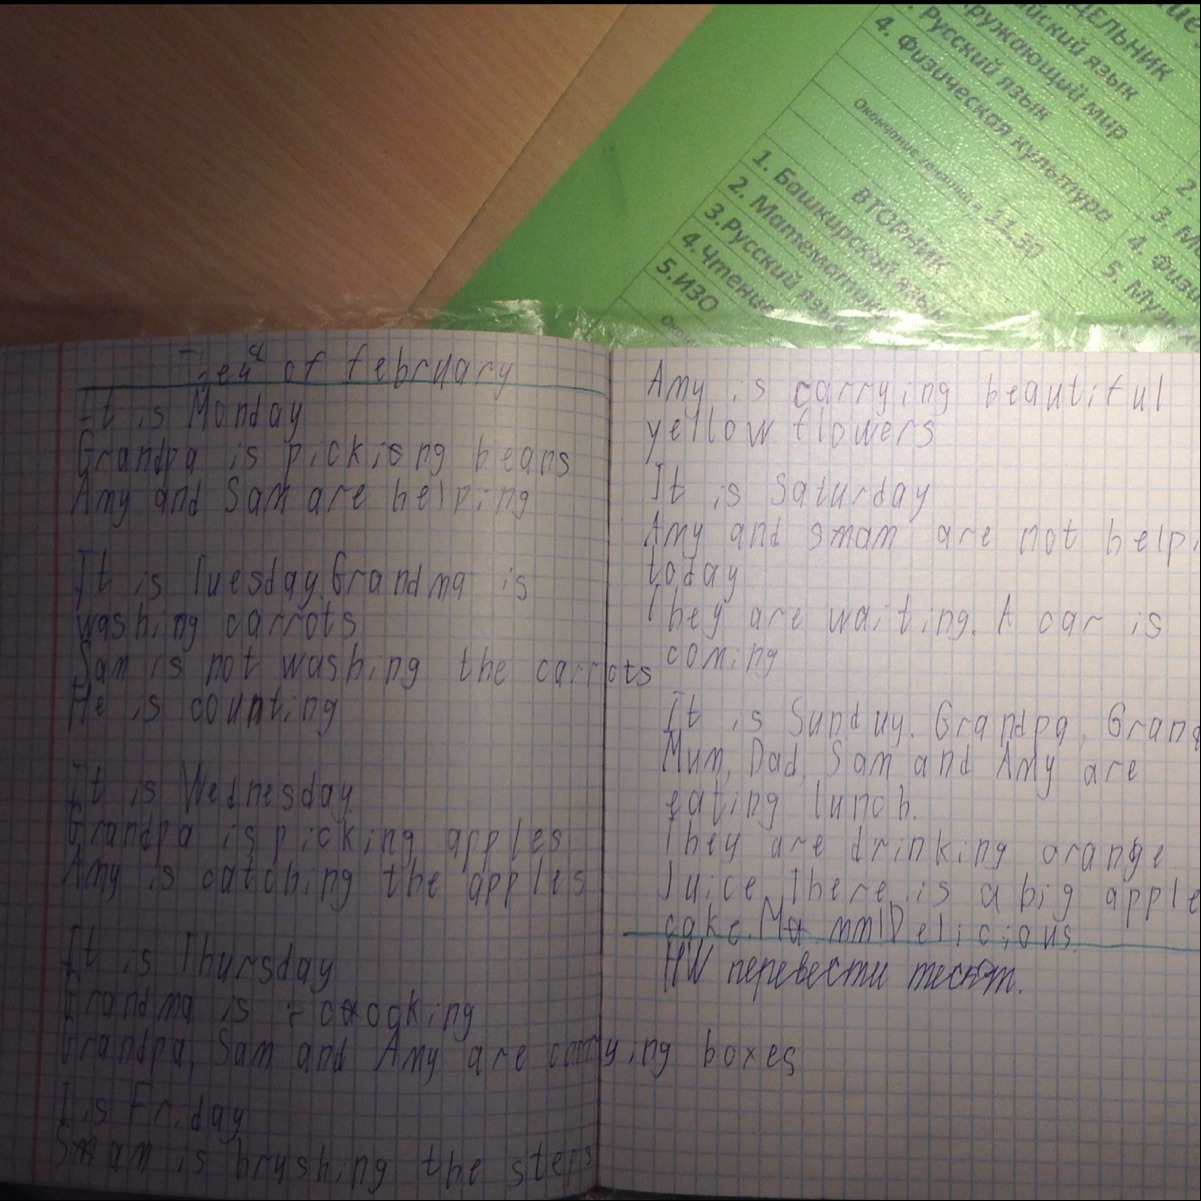 НЕДЕЛЬНИК
йский язык
ружающий мир
Русский язык
4. Физическая культура
11.30
ВТОРНИК
1. Башкирский язык
2. Математик
3.Русский язы
4.Чтени
5.ИЗО
2.
3. М
4. Физи
5. Музы
of february
It is Monday
Grandpa is pickisng beans
Amy and Sam are helping
It is Tuesday.Grandma is
washing carrots
Sam is not washing the carrots
He is counting
It is Wednesday.
Grandpa is picking apples
Amy is catching the apples
It is Thursday
Grandma is cooking
Grandpa, Sam and Amy are carrying boxes
I is Friday
Smam is brushing the steps
Amy is carrying beautiful
yellow flowers
It is Saturday
Amy and smam are not help
today
They are waiting. A car is
coming
It is Sunduy. Grandpa, Grand
Mum, Dad, Sam and Amy are
eating lunch.
They are drinking orange
Juice. There is a big apple
cake. Delicious
HW перевести текст.